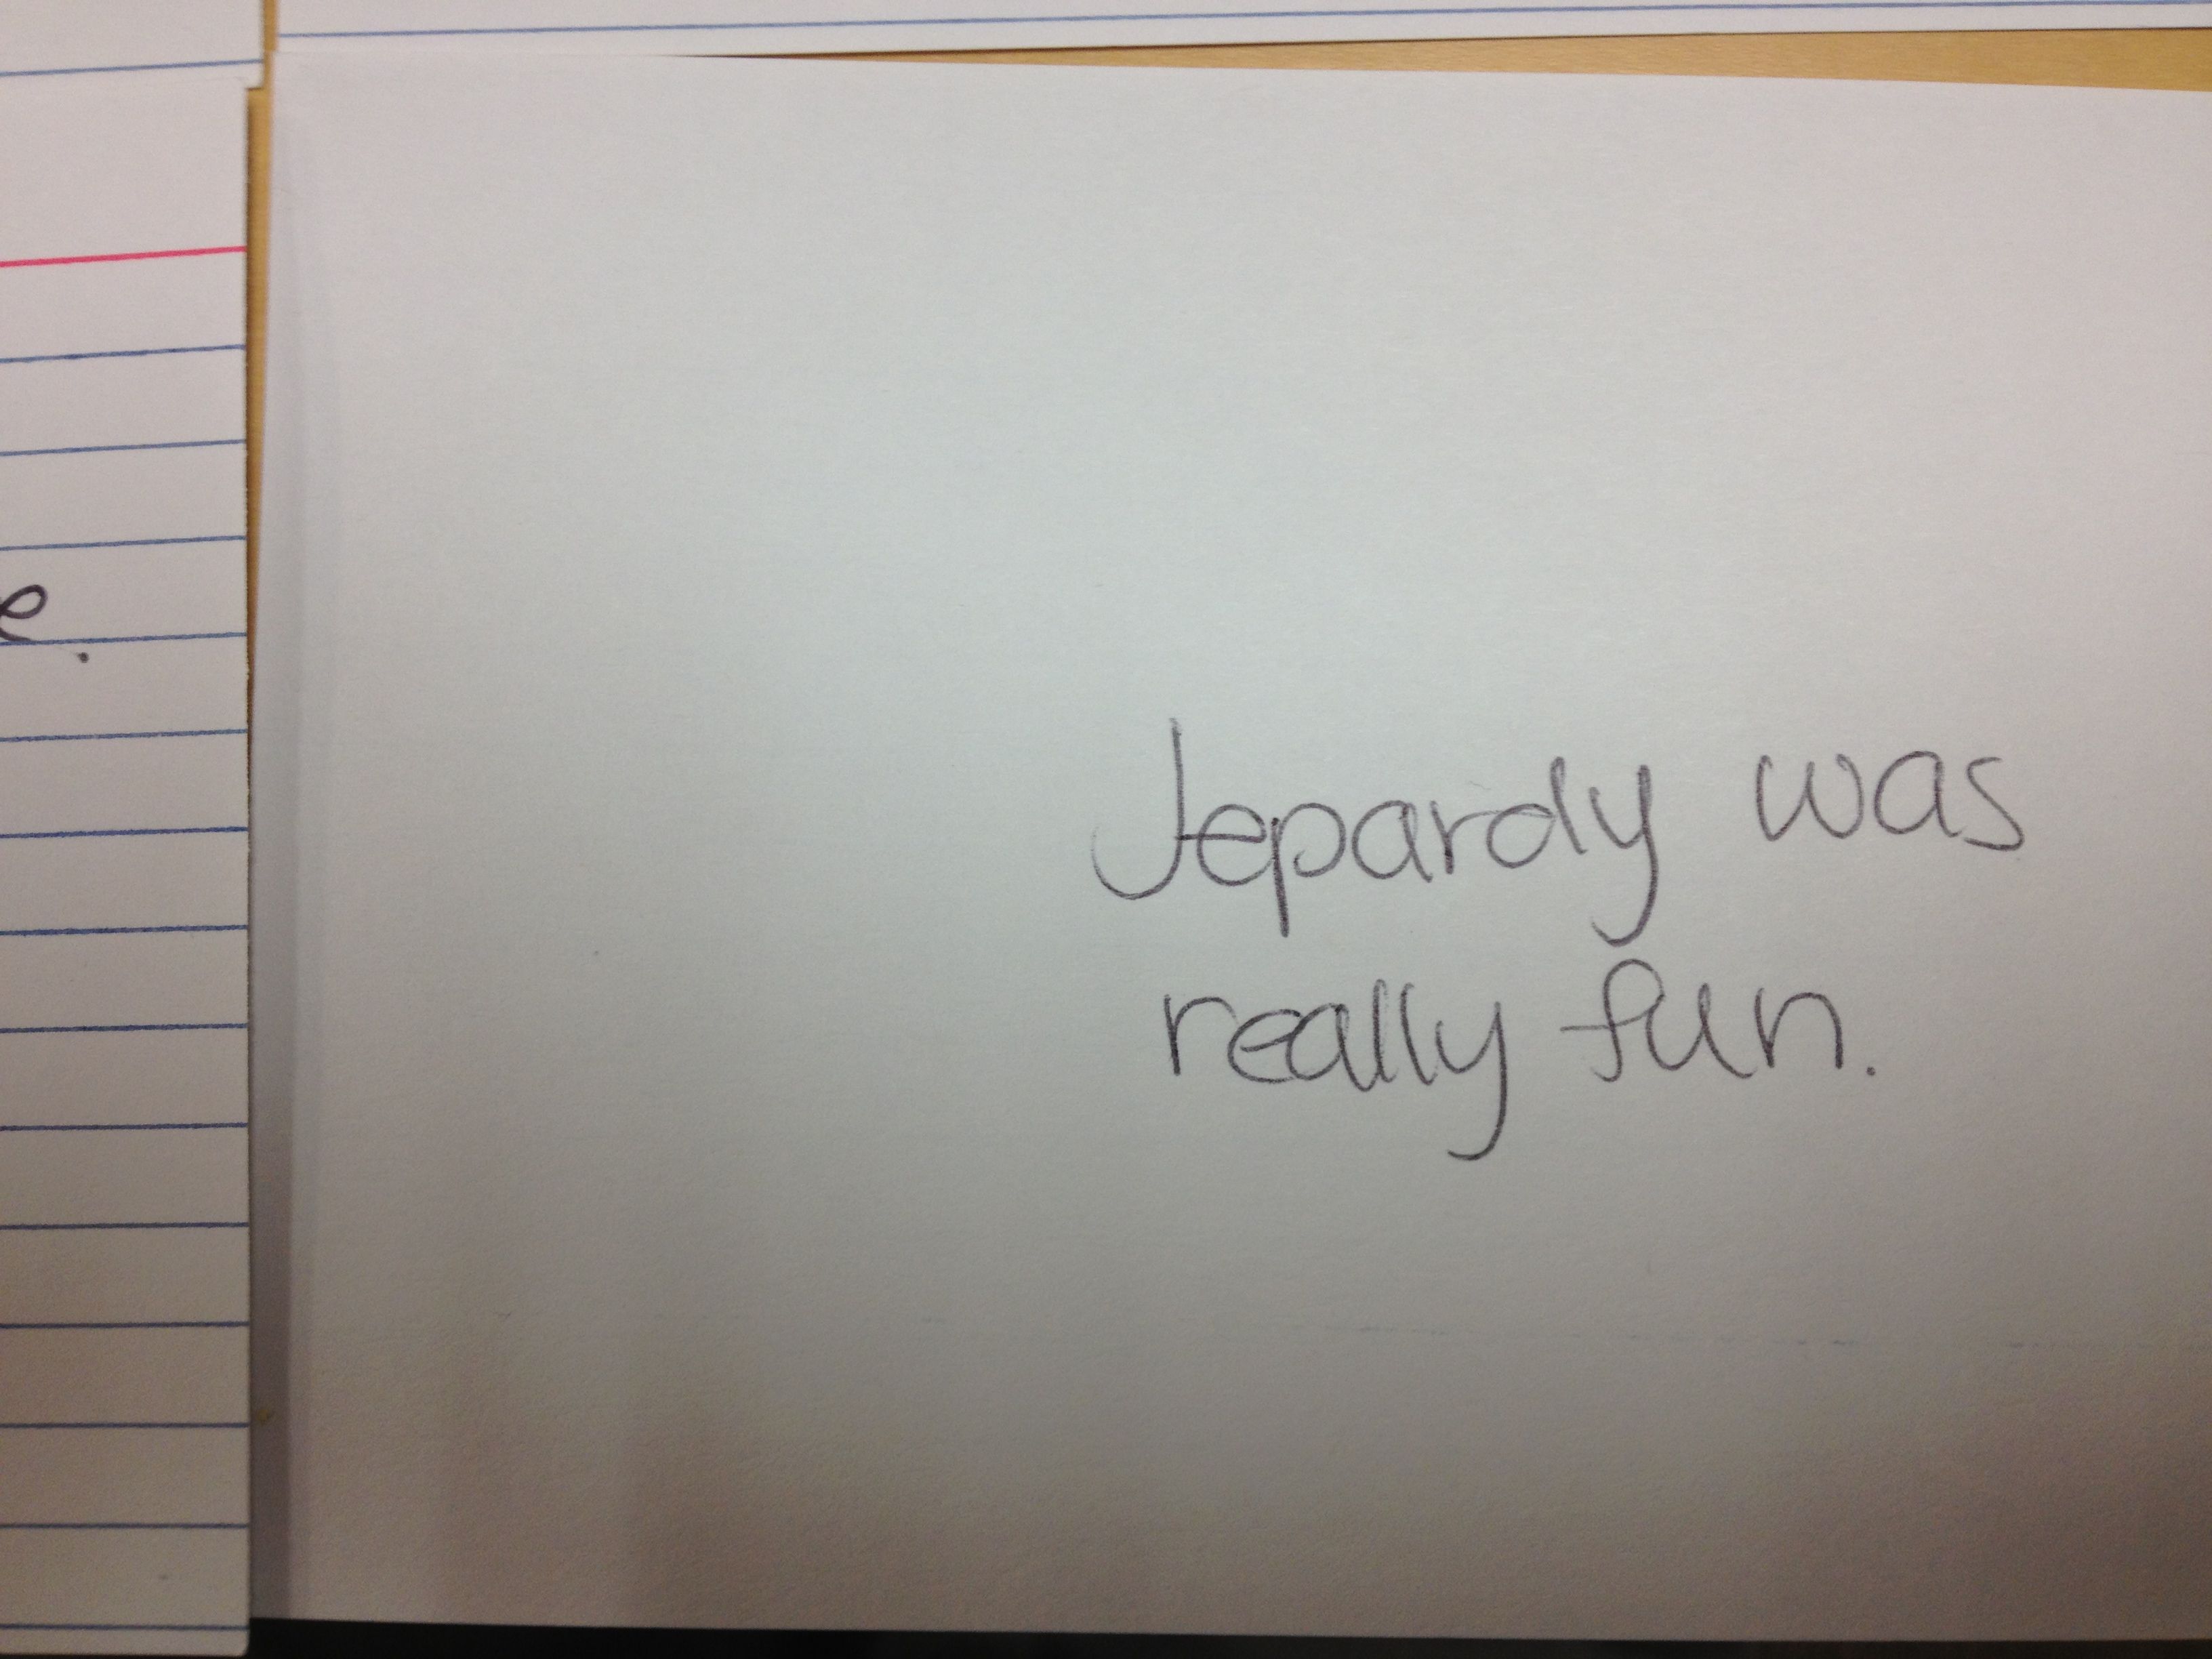 Jepardy was
really fun.